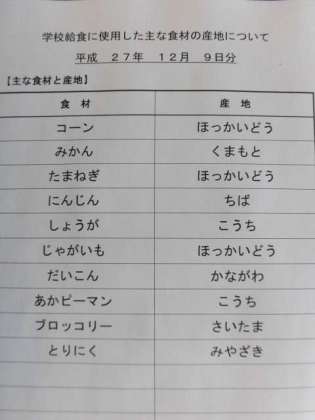 学校給食に使用した主な食材の産地について
平成　２７年　１２月　９日分
【主な食材と産地】
食　材　産　地
コーン　ほっかいどう
みかん　くまもと
たまねぎ　ほっかいどう
にんじん　ちば
しょうが　こうち
じゃがいも　ほっかいどう
だいこん　かながわ
あかピーマン　こうち
ブロッコリー　さいたま
とりにく　みやざき